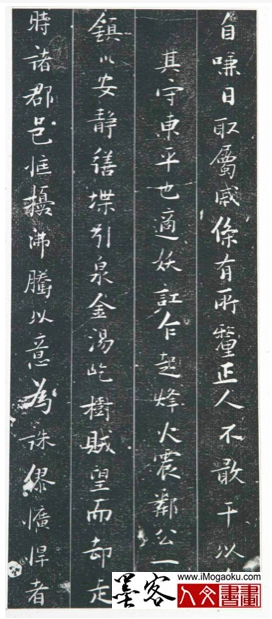 自嗛日取屬咸條有所釐正人不敢干以
其守東平也適妖訌乍起烽火震鄰公一
鎮以安靜繕堞引泉金湯屹樹賊望而却走
時諸郡邑恇擾沸騰以意為誅繆獷悍者
墨客
www.iMogaoku.com
人文書畫